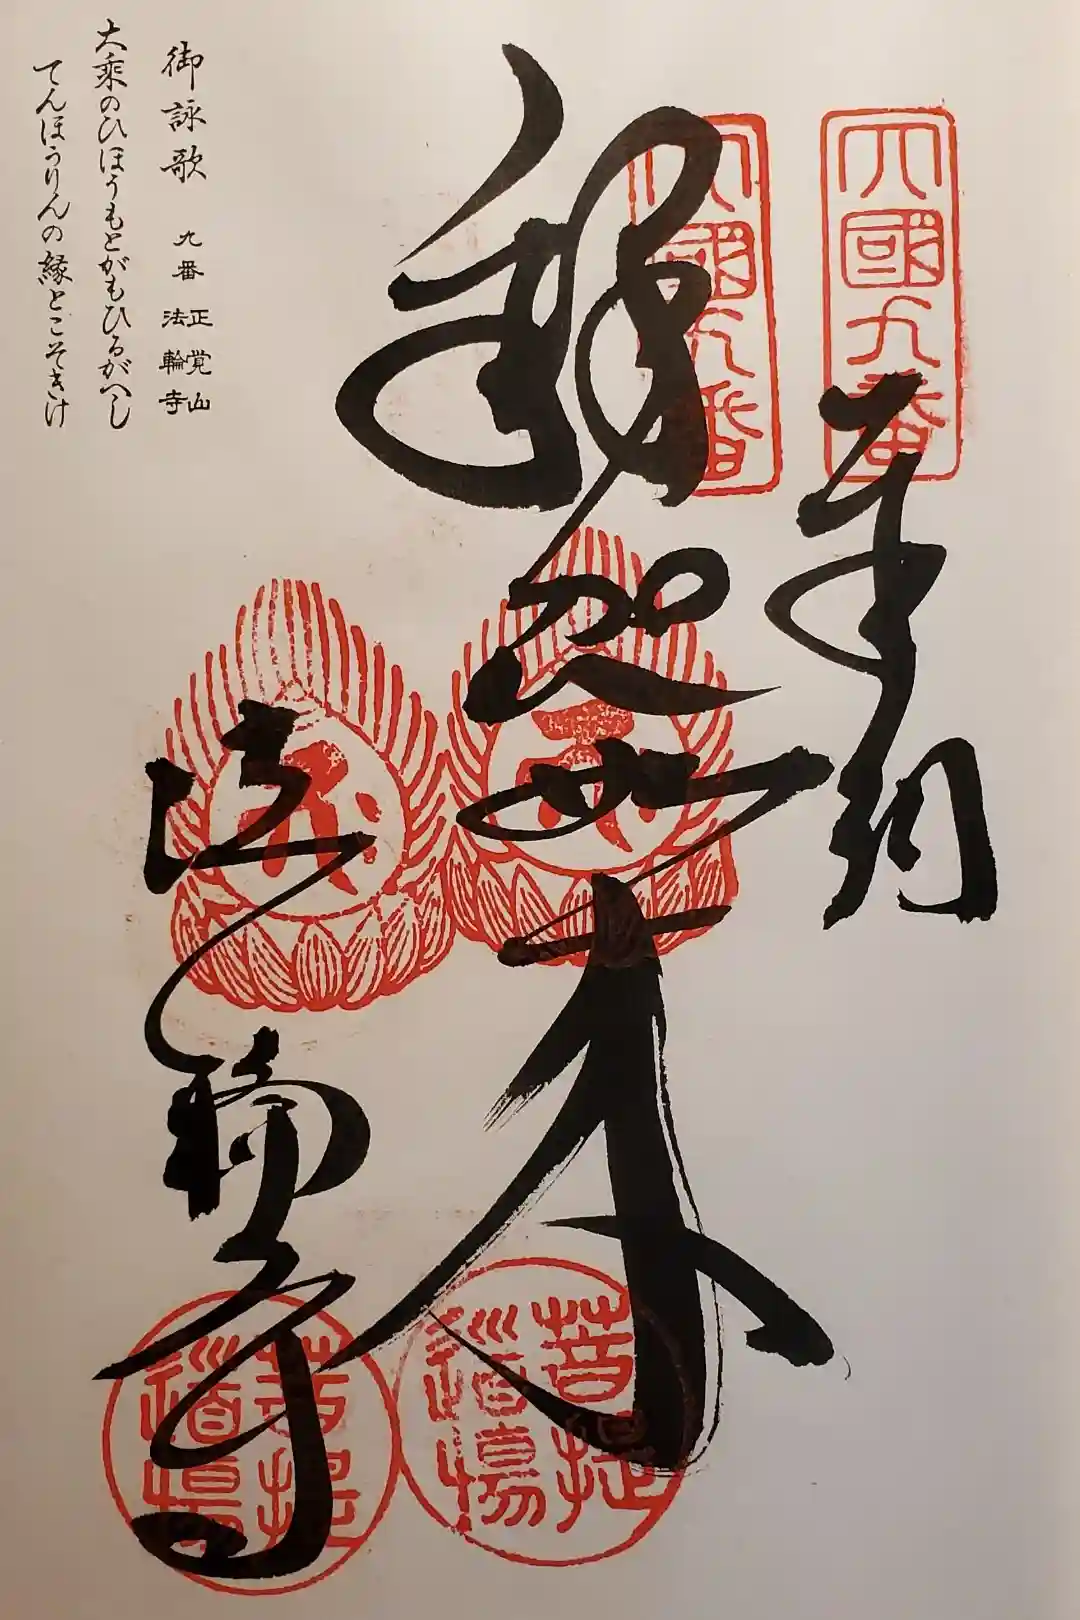 奉納
四國九番
四國九番
釋迦如来
菩提
道場
法輪寺
菩提
道場
御詠歌 九番 正覚山
法輪寺
大乗のひほうもとがもひるがへし
てんぽうりんの縁とこそきけ